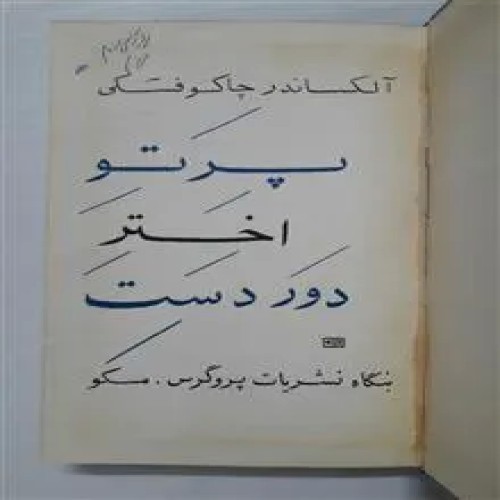 آلکساندر چاکوفسکی
پرتو
اختر
دوردست
بنگاه نشریات پروگرس . مسکو